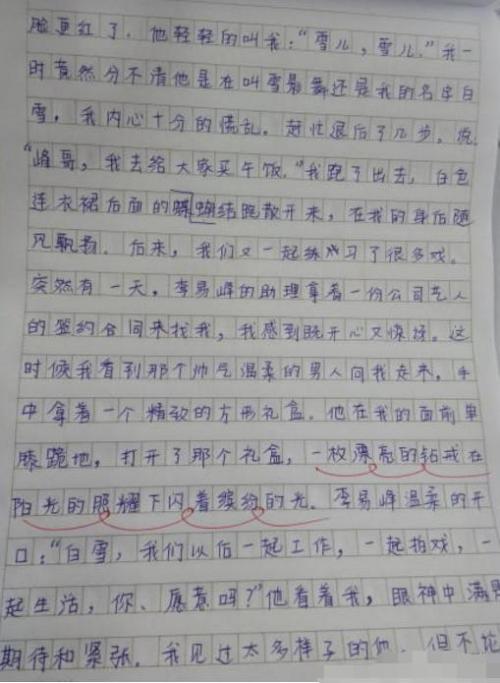 脸更红了。他轻轻的叫我："雪儿，雪儿。"我一
时竟然分不清他是在叫雪影舞还是我的名字白
雪，我内心十分的慌乱。赶忙退后了几步，说
"峰哥，我去给大家买午饭。"我跑了出去，白色
连衣裙后面的蝴蝶结跑散开来，在我的身后随
风飘扬。后来，我们又一起练习了很多戏。
突然有一天，李易峰的助理拿着一份公司艺人
的签约合同来找我，我感到既开心又惊讶。这
时候我看到那个帅气温柔的男人向我走来，手
中拿着一个精致的方形礼盒。他在我的面前单
膝跪地，打开了那个礼盒，一枚漂亮的钻戒在
阳光的照耀下闪着缤纷的光。李易峰温柔的开
口："白雪，我们以后一起工作，一起拍戏，一
起生活，你、愿意吗？"他看着我，眼神中满是
期待和紧张。我见过太多样子的他，但不论